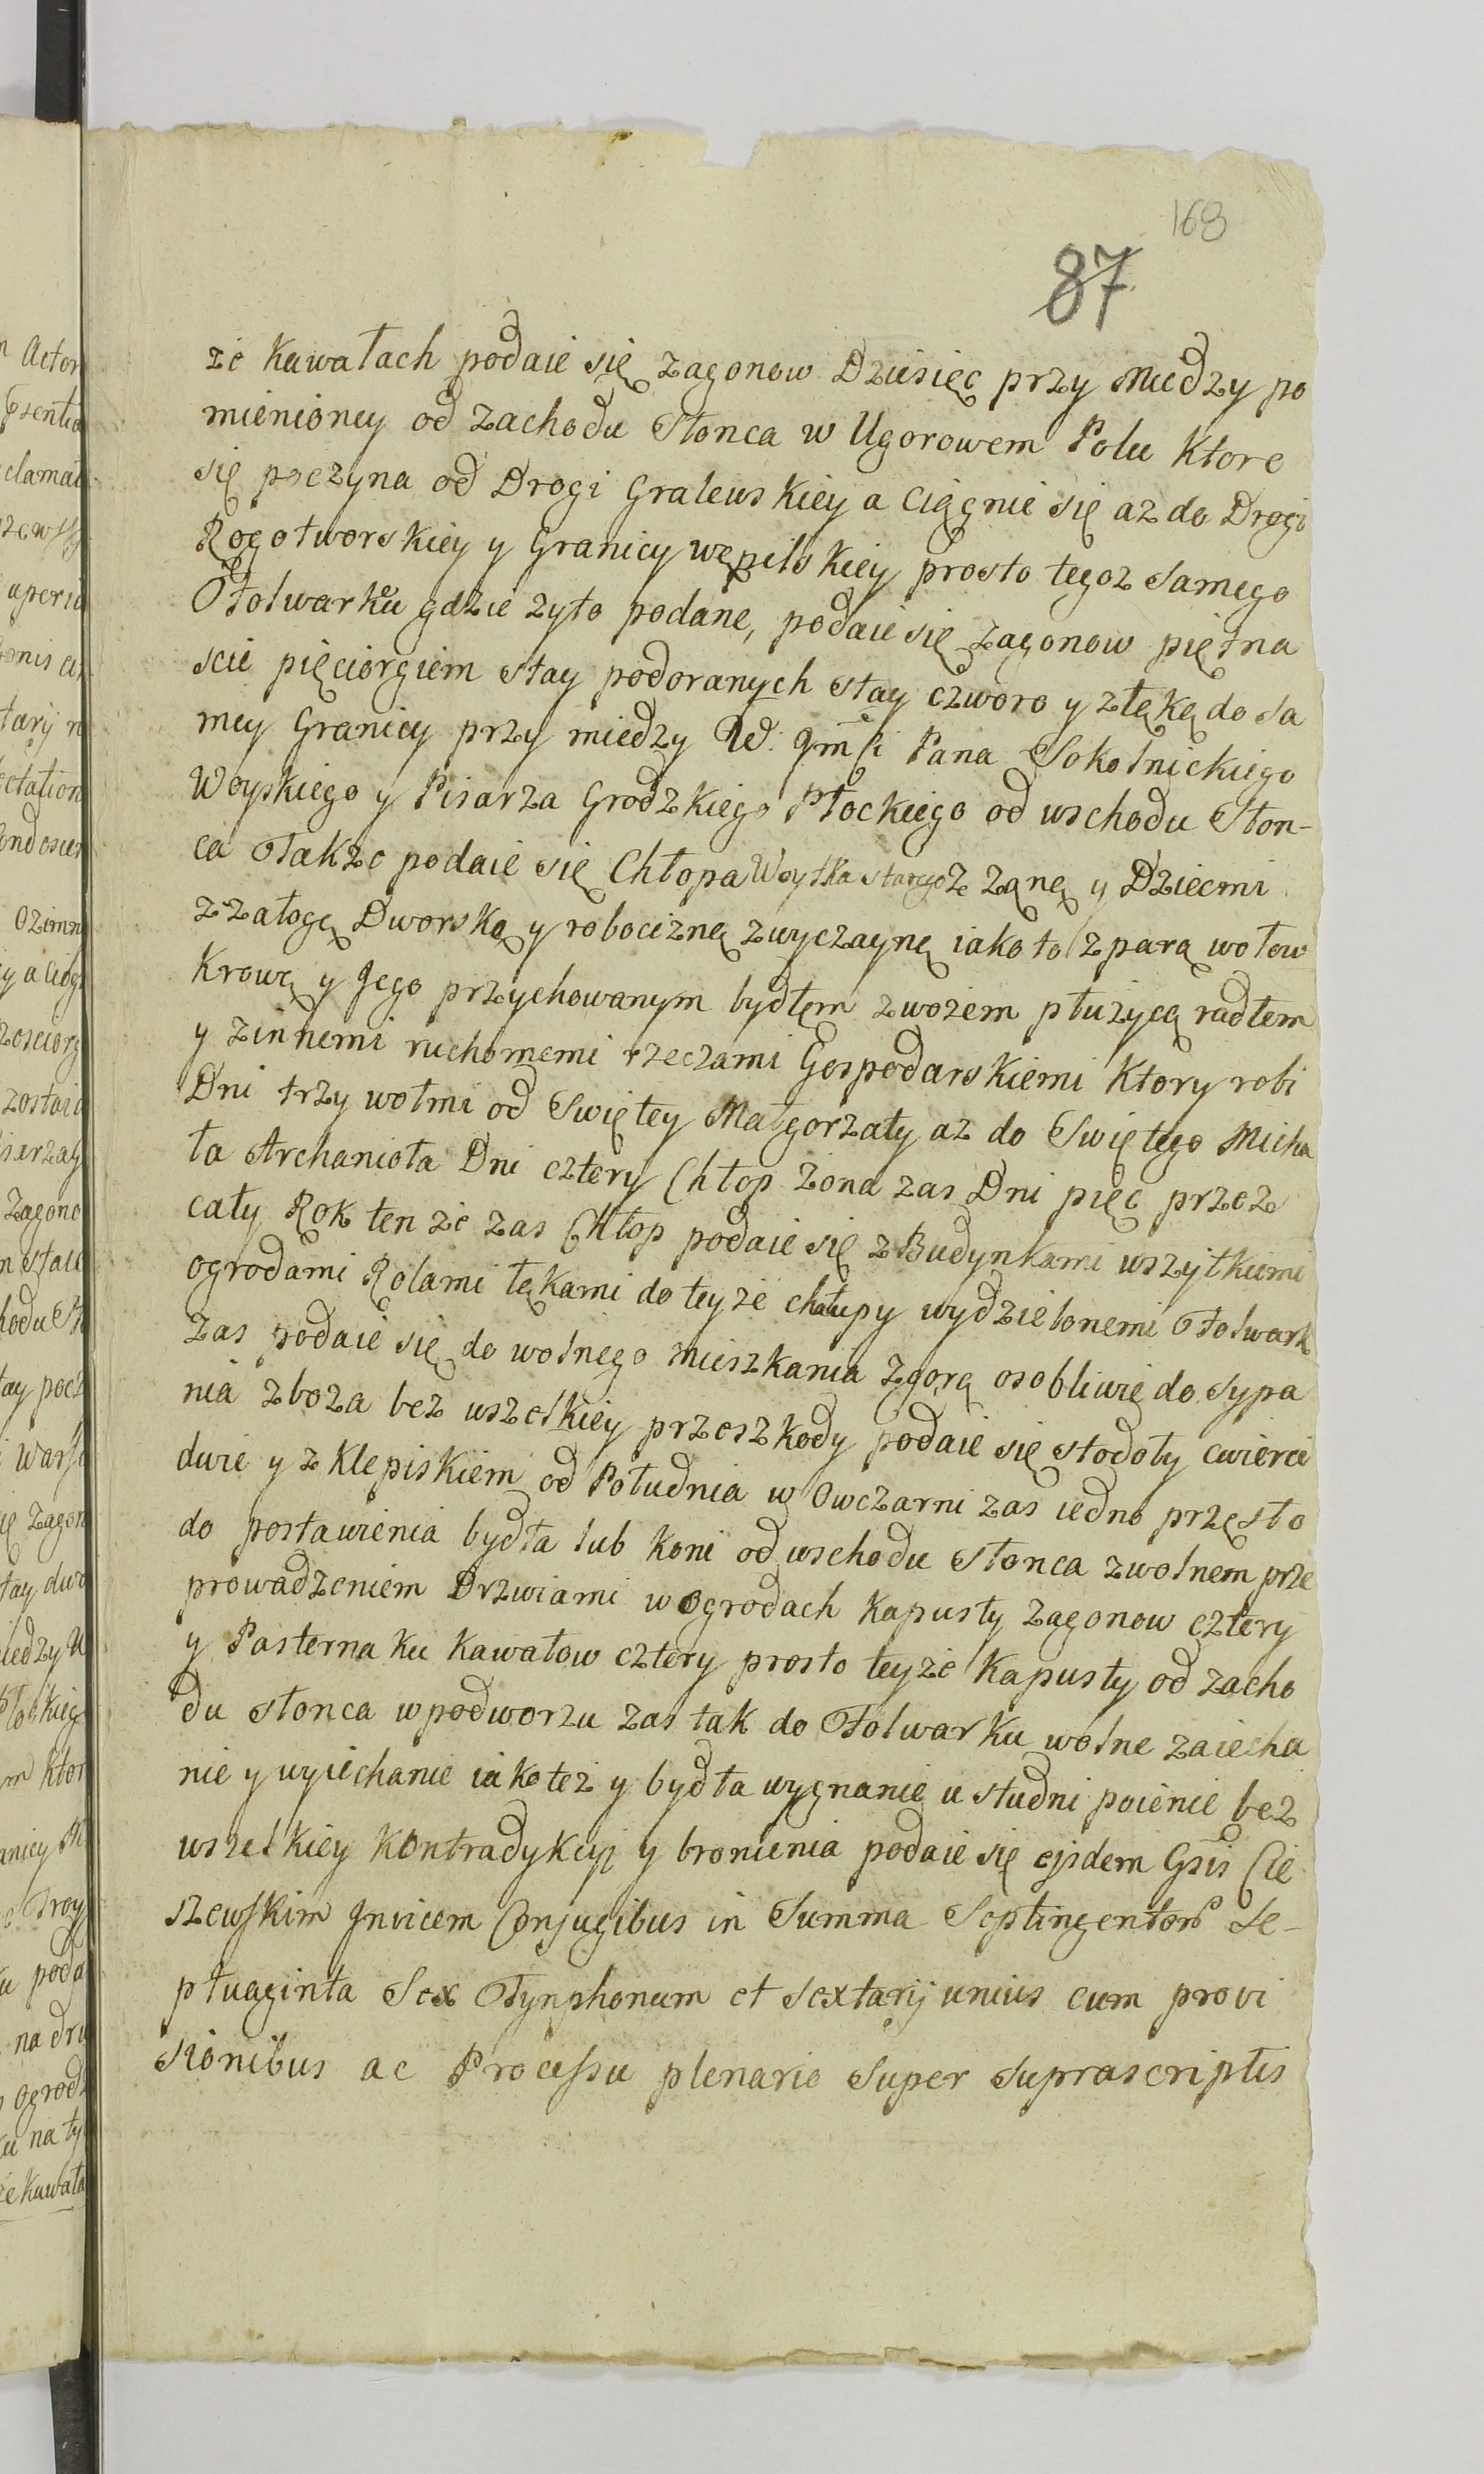 168
87
że Kawałach podaie się zagonow Dziesięc przy Miedzy po
mienioney od zachodu Słonca w Ugorowem Polu Ktore
się poczyna od Drogi Gralewskiey a Ciągnie się az do Drogi
Rogotworskiey y Granicy wępilskiey prosto tegoz Samego
Folwarku gdzie zyto podane, podaie się zagonow piętna
scie pięciorgiem stay podoranych stay czworo y złęką do Sa
mey Granicy przy miedzy W. Jmści Pana Sokolnickiego
Woyskiego y Pisarza Grodzkiego Płockiego od wschodu Słon-
ca Także podaie się Chłopa Woytka starego z Ząną y Dziecmi
z załogą Dworską y robocizną zwyczayną iako to z parą wołow
Krową y Jego przychowanym bydłem z wozem płużycą radłem
y z innemi ruchomemi rzeczami Gospodarskiemi Ktory robi
Dni trzy wołmi od Swiętey Małgorzaty az do Swiętego Micha
ła Archanioła Dni cztery Chłop Zona zas Dni pięc przez
cały Rok ten że zas Chłop podaie się z Budynkami wszytkiemi
ogrodami Rolami łękami do teyże chałupy wydzielonemi Folwark
zas podaie się do wolnego mieszkania z gorą osobliwie do sypa
nia zboza bez wszelkiey przeszkody podaie się stodoły cwierci
dwie y z Klepiskiem od Południa w Owczarni zas iedno przęsło
do postawienia bydła lub Koni od wschodu Słonca z wolnem prze
prowadzeniem Drzwiami w ogrodach Kapusty zagonow cztery
y Pasternaku Kawałow cztery prosto teyże Kapusty od zacho
du słonca w podworzu zas tak do Folwarku wolne zaiecha
nie y wyiechanie iako też y bydła wygnanie u studni poienie bez
wszelkiey Kontradykcyi y bronienia podaie się ejsdem Gsis Cie
szewskim Invicem Conjugibus in Summa Septingentorum Se-
ptuaginta Sex Tynphonum et Sextarij unius cum provi
sionibus ac Processu plenarie Super Suprascriptis